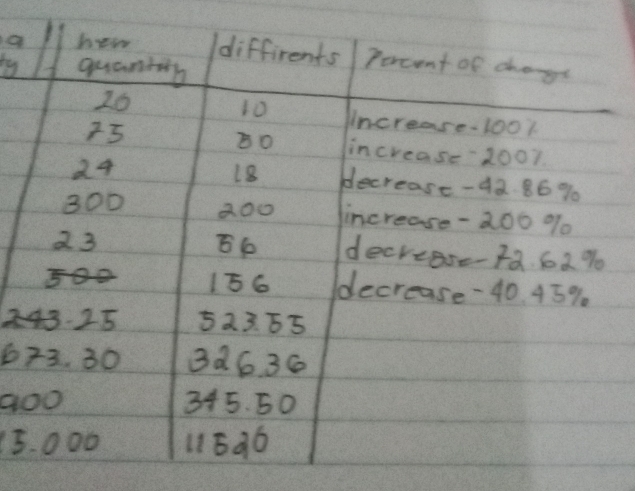 a || new | differents | Percent of change
ty || quantity
20 | 10 | increase-100%
75 | 50 | increase-200%
24 | 18 | decrease-42.86%
300 | 200 | increase-200%
23 | 56 | decrease-72.62%
500 | 156 | decrease-40.45%
243.25 | 523.55
673.30 | 326.36
900 | 345.50
15.000 | 11520